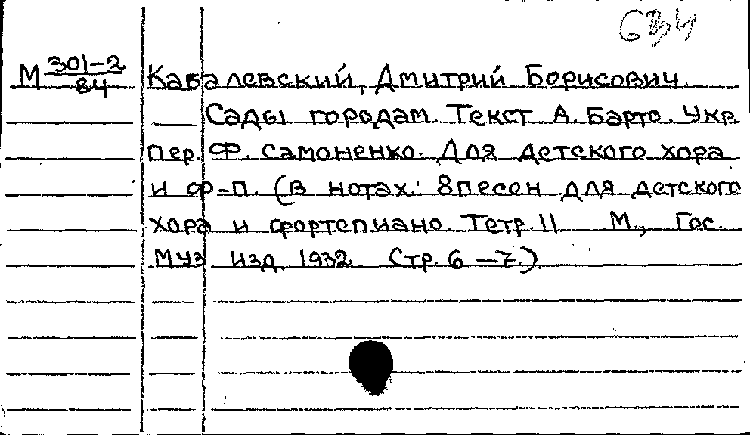 634
М 301-2/84
Кабалевский, Дмитрий Борисович.
Сады городам. Текст А. Барто. Укр.
пер. Ф. Самоненко. Для детского хора
и ф-п. (В нотах: 8 песен для детского
хора и фортепиано. Тетр. II М., Гос.
Муз. изд. 1932. Стр. 6-7.)